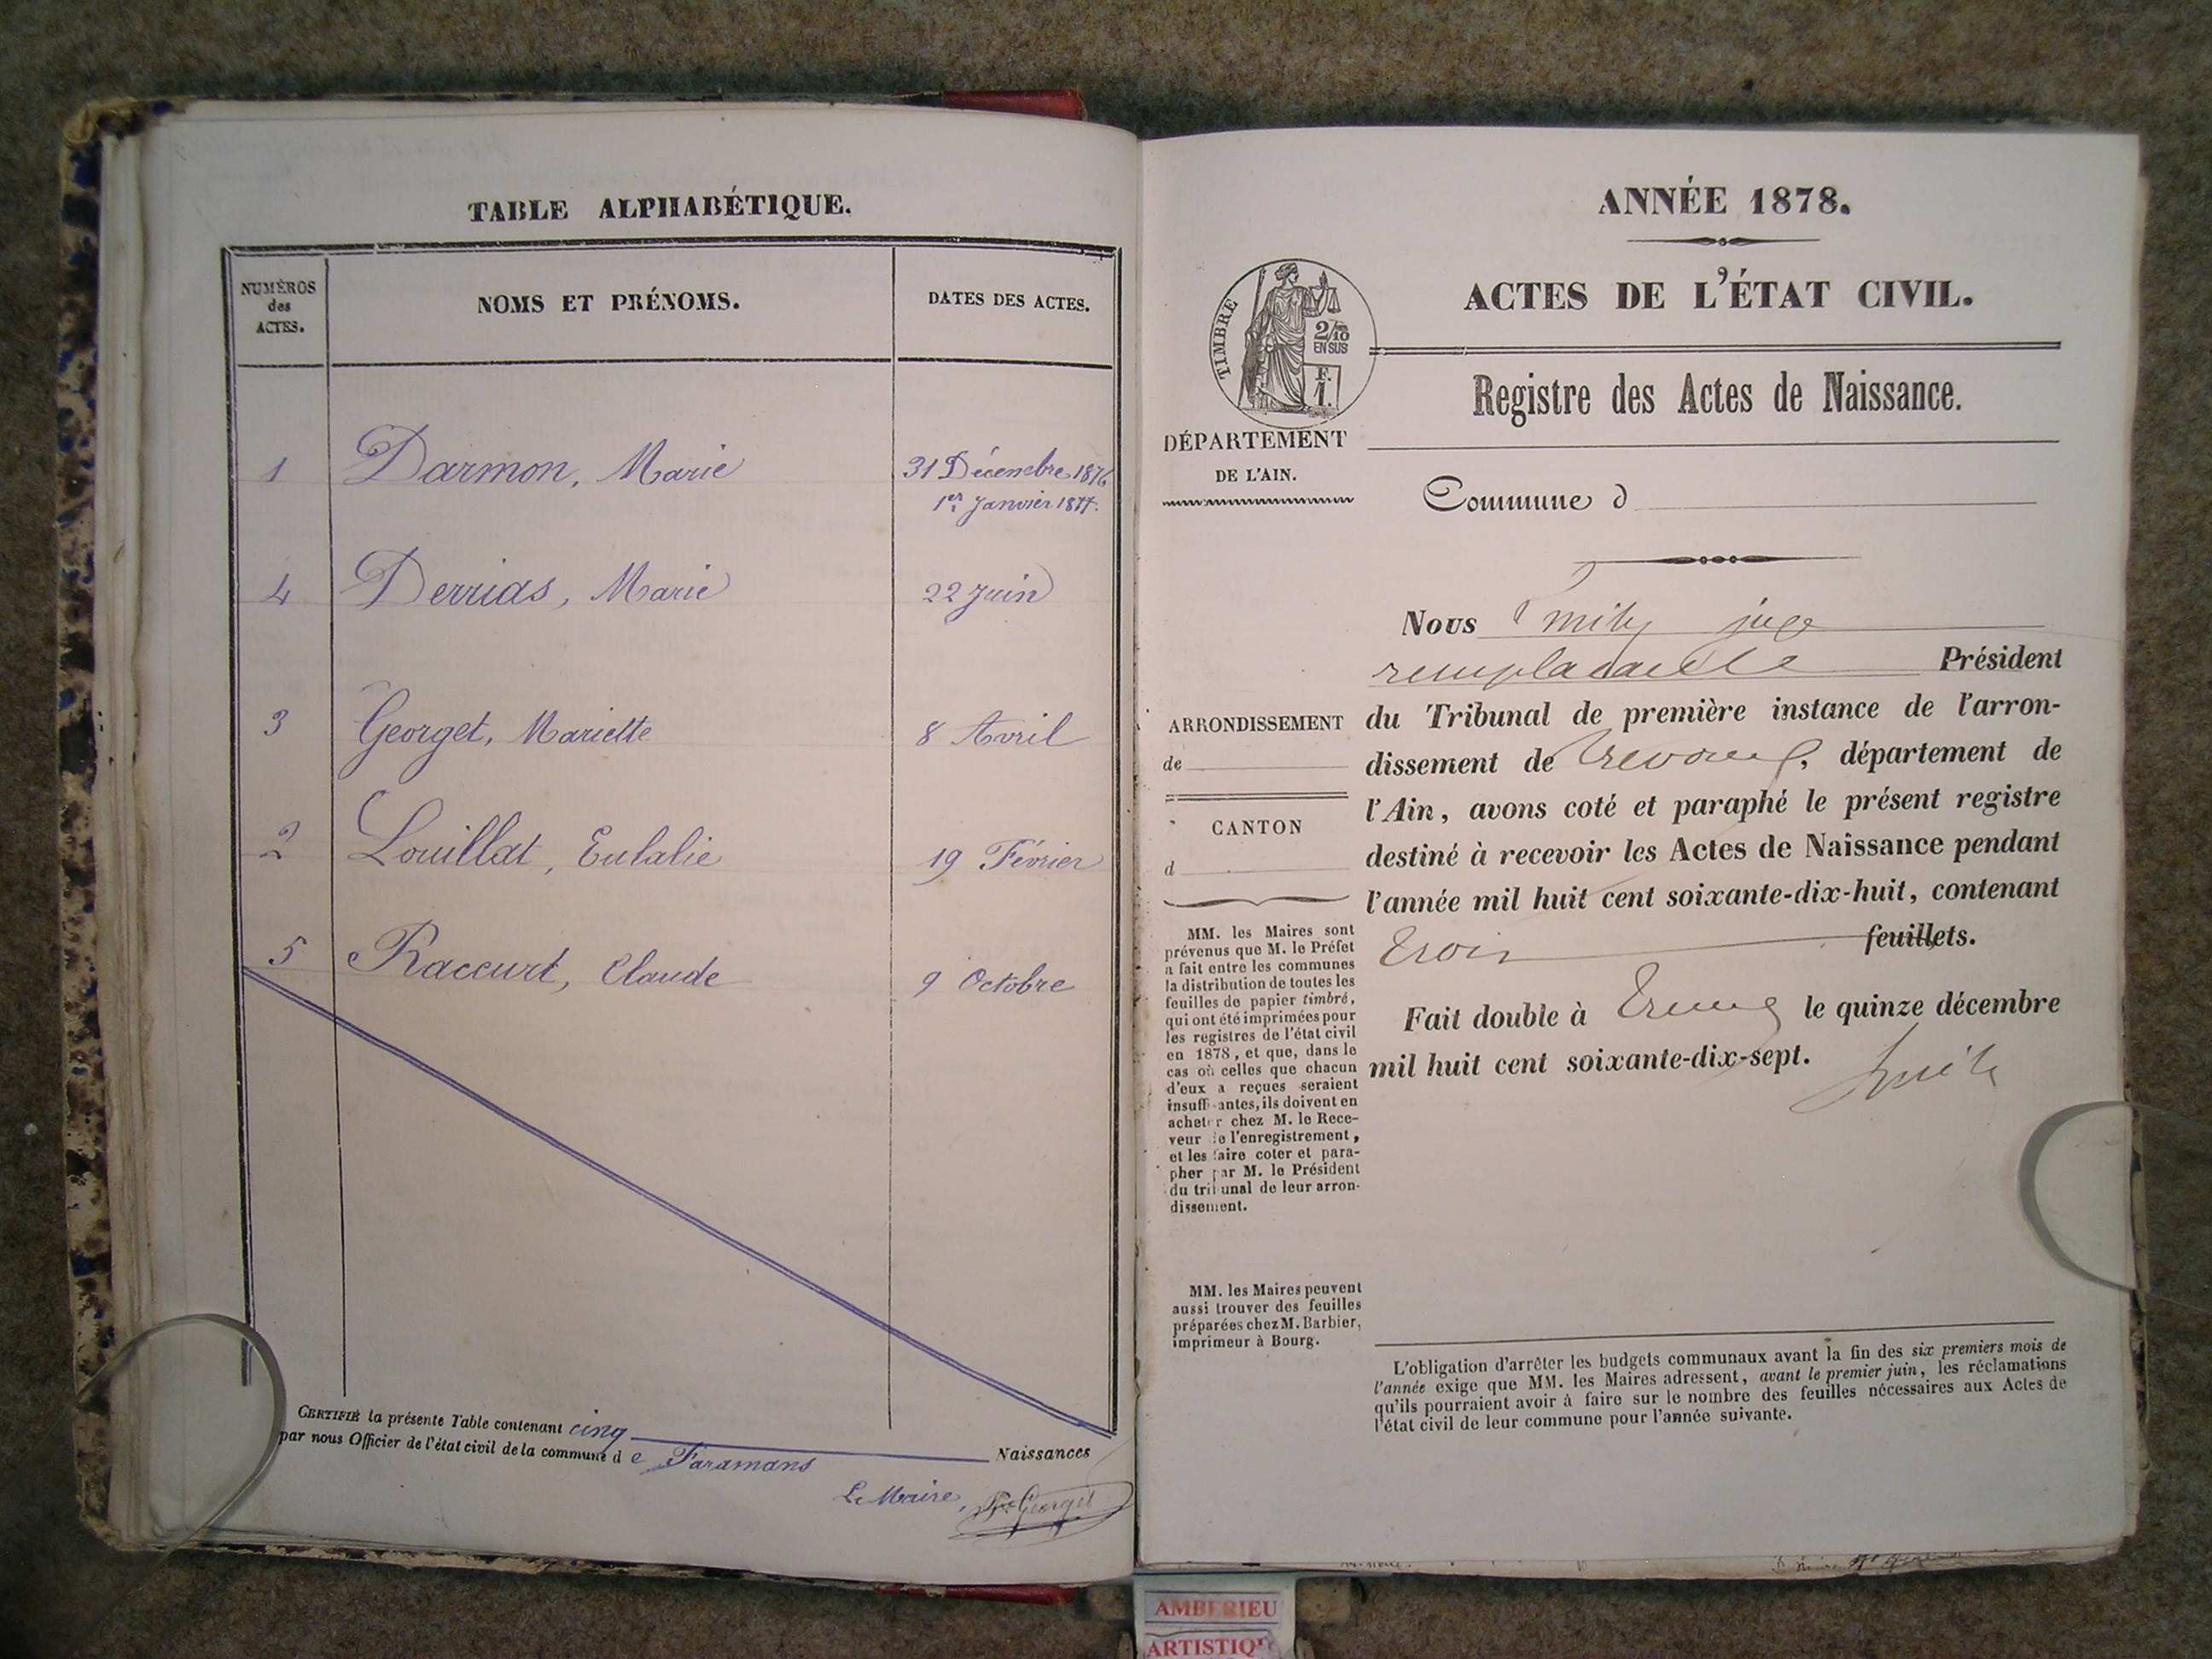 TABLE ALPHABÉTIQUE.
NUMÉROS
des
ACTES.
NOMS ET PRÉNOMS.
DATES DES ACTES.
1 Darmon, Marie 31 Décembre 1876
1er Janvier 1877.
4 Derrias, Marie 22 Juin
3 Georget, Mariette 8 Avril
2 Louillat, Eulalie 19 Février
5 Raccurt, Claude 9 Octobre
CERTIFIÉ la présente Table contenant cinq Naissances
par nous Officier de l'état civil de la commune de Faramans
Le Maire, Georget
ANNÉE 1878.
ACTES DE L'ÉTAT CIVIL.
TIMBRE
2/10
EN SUS
F.
1.
Registre des Actes de Naissance.
DÉPARTEMENT
DE L'AIN.
Commune d
Nous Smith juge
remplaçant le Président
du Tribunal de première instance de l'arron-
dissement de Trevoux, département de
l'Ain, avons coté et paraphé le présent registre
destiné à recevoir les Actes de Naissance pendant
l'année mil huit cent soixante-dix-huit, contenant
trois feuillets.
Fait double à Trevoux le quinze décembre
mil huit cent soixante-dix-sept.
ARRONDISSEMENT
de
CANTON
d
MM. les Maires sont
prévenus que M. le Préfet
a fait entre les communes
la distribution de toutes les
feuilles de papier timbré,
qui ont été imprimées pour
les registres de l'état civil
en 1878, et que, dans le
cas où celles que chacun
d'eux a reçues seraient
insuffisantes, ils doivent en
acheter chez M. le Rece-
veur de l'enregistrement,
et les faire coter et para-
pher par M. le Président
du tribunal de leur arron-
dissement.
MM. les Maires peuvent
aussi trouver des feuilles
préparées chez M. Barbier,
imprimeur à Bourg.
L'obligation d'arrêter les budgets communaux avant la fin des six premiers mois de
l'année exige que MM. les Maires adressent, avant le premier juin, les réclamations
qu'ils pourraient avoir à faire sur le nombre des feuilles nécessaires aux Actes de
l'état civil de leur commune pour l'année suivante.
AMBERIEU
ARTISTIQU